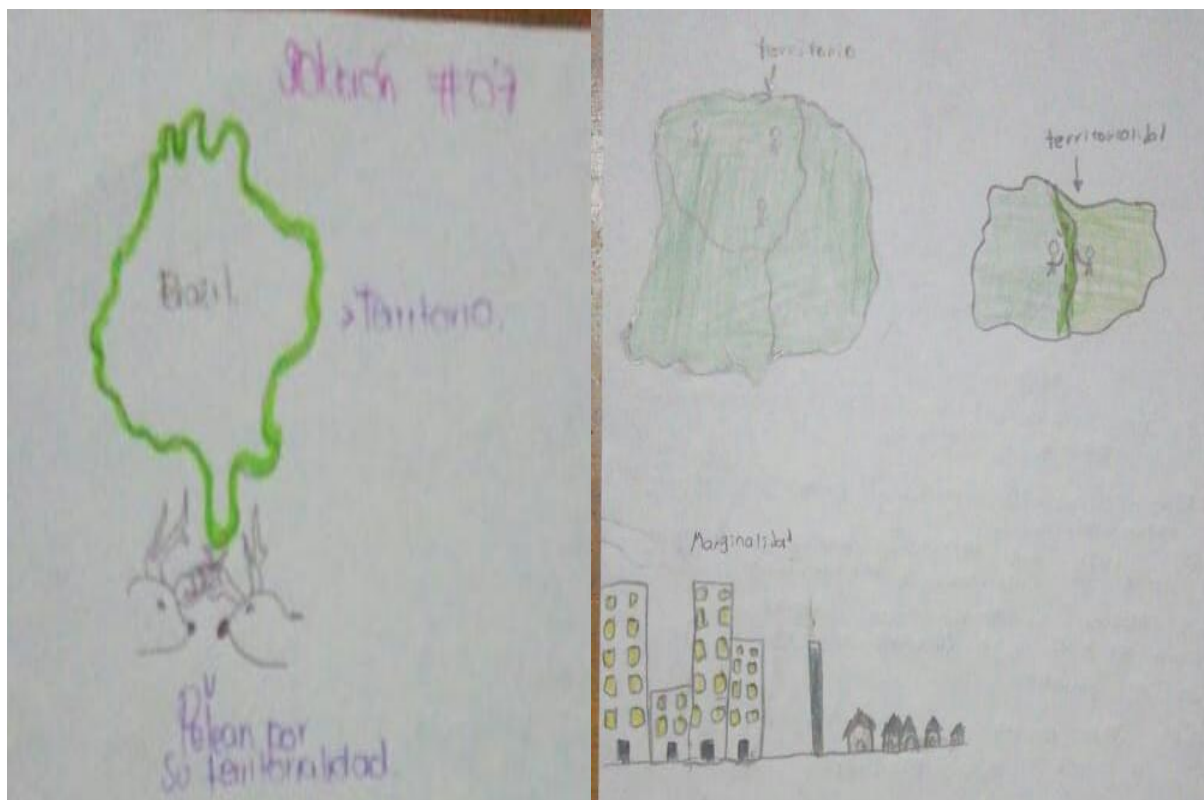 #07
Brazil
Territorio.
Pelean por
su territorialidad.
territorio
territorialidad
Marginalidad